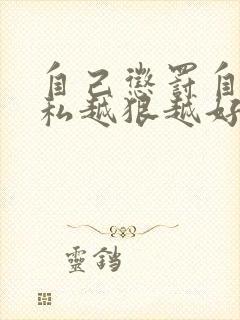 自己懲罰自
私越狠越好
靈鐺